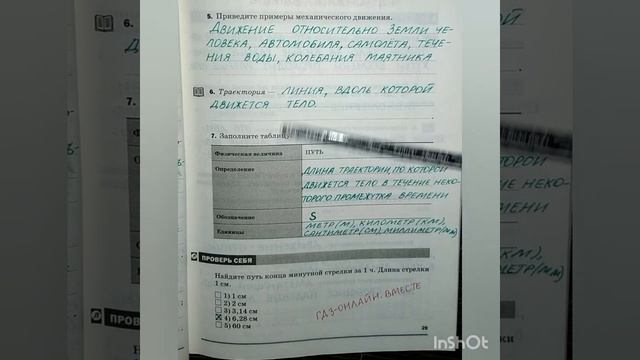 5. Приведите примеры механического движения.
ДВИЖЕНИЕ ОТНОСИТЕЛЬНО ЗЕМЛИ ЧЕ-
ЛОВЕКА, АВТОМОБИЛЯ, САМОЛЕТА, ТЕЧЕ-
НИЯ ВОДЫ, КОЛЕБАНИЯ МАЯТНИКА
6. Траектория — ЛИНИЯ, ВДОЛЬ КОТОРОЙ
ДВИЖЕТСЯ ТЕЛО.
7. Заполните таблицу
Физическая величина ПУТЬ
Определение ДЛИНА ТРАЕКТОРИИ, ПО КОТОРОЙ
ДВИЖЕТСЯ ТЕЛО В ТЕЧЕНИЕ НЕКО-
ТОРОГО ПРОМЕЖУТКА ВРЕМЕНИ
Обозначение S
Единицы МЕТР(М), КИЛОМЕТР(КМ),
САНТИМЕТР(СМ), МИЛЛИМЕТР(ММ)
ПРОВЕРЬ СЕБЯ
Найдите путь конца минутной стрелки за 1 ч. Длина стрелки
1 см.
1) 1 см
2) 2 см
3) 3,14 см
4) 6,28 см
5) 60 см
ГДЗ-ОНЛАЙН. ВМЕСТЕ
InShOt